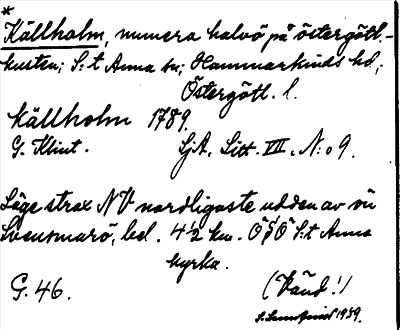 *
Källholm, numera halvö på östergötl.-
kusten; S:t Anna sn; Hammarkinds hd;
Östergötl. l.
Källholm 1789.
G. Klint. SjA. Litt. VIII. N:o 9.
Läge strax NV nordligaste udden av ön
Svensmarö, bel. 4 1/2 km. ÖSÖ S:t Anna
kyrka.
G. 46. (Vänd!)
1939.